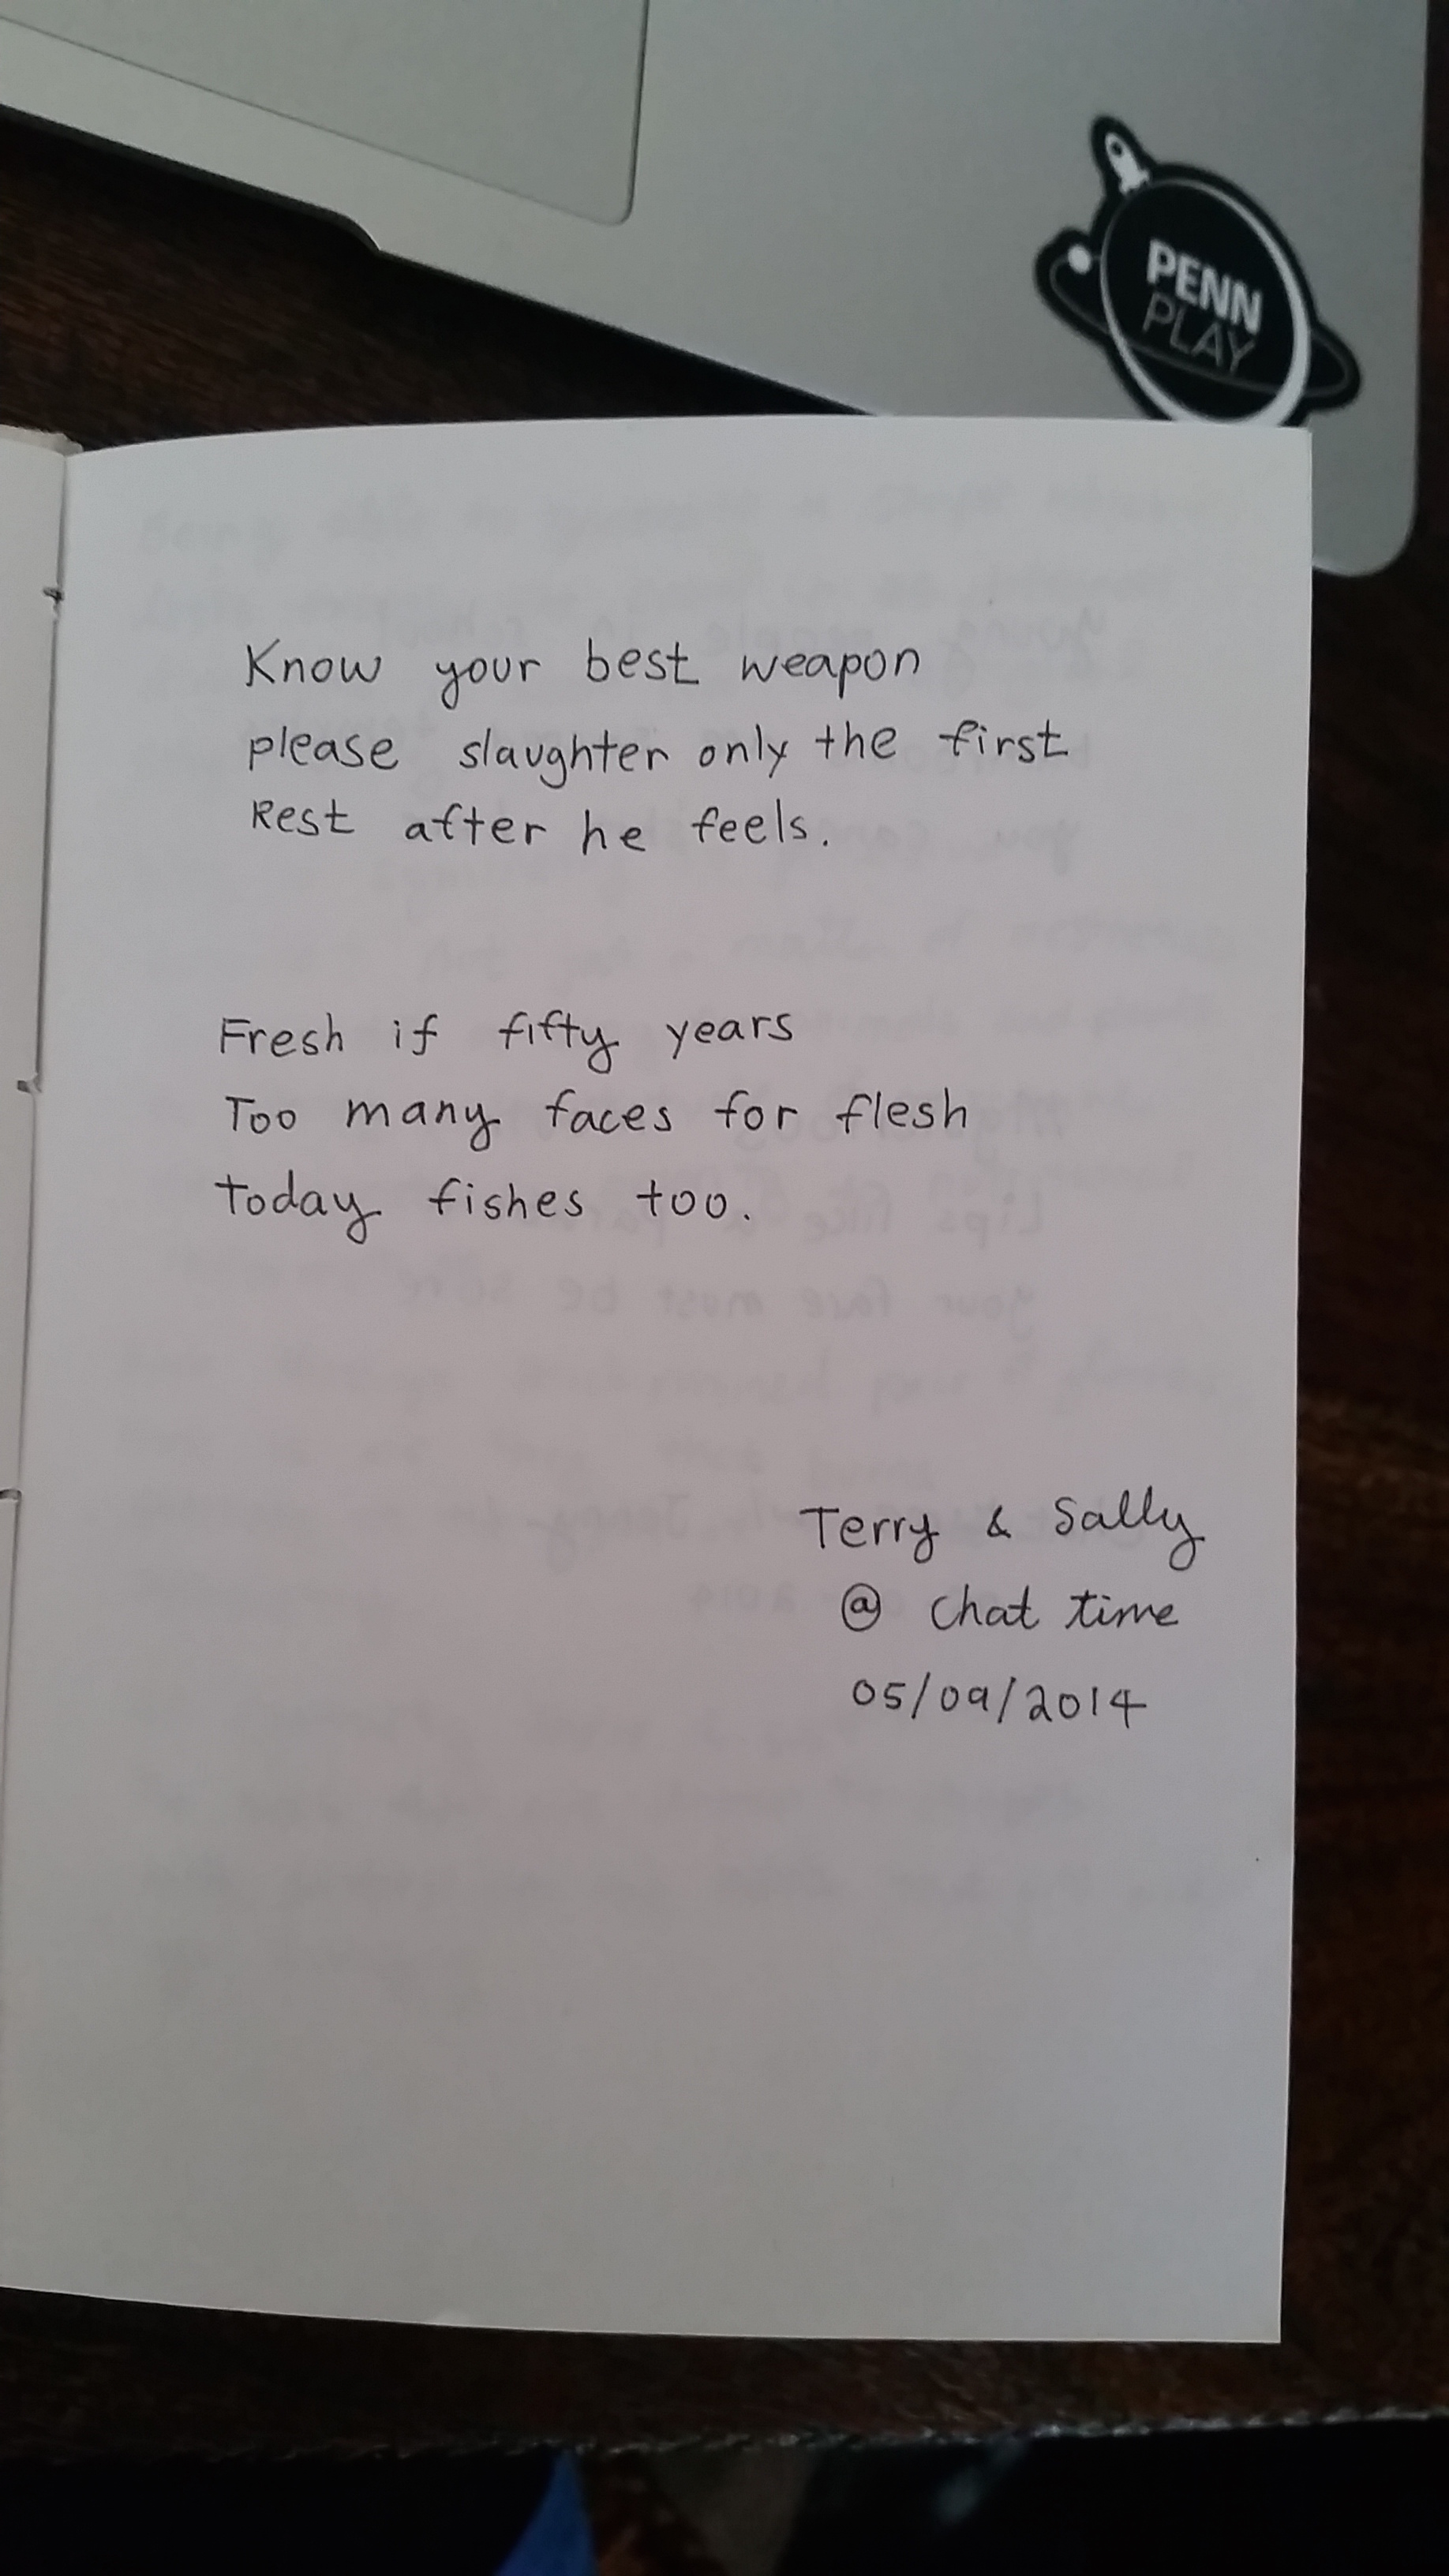 PENN
PLAY
Know your best weapon
please slaughter only the first
Rest after he feels.
Fresh if fifty years
Too many faces for flesh
Today fishes too.
Terry & Sally
@ Chat time
05/09/2014